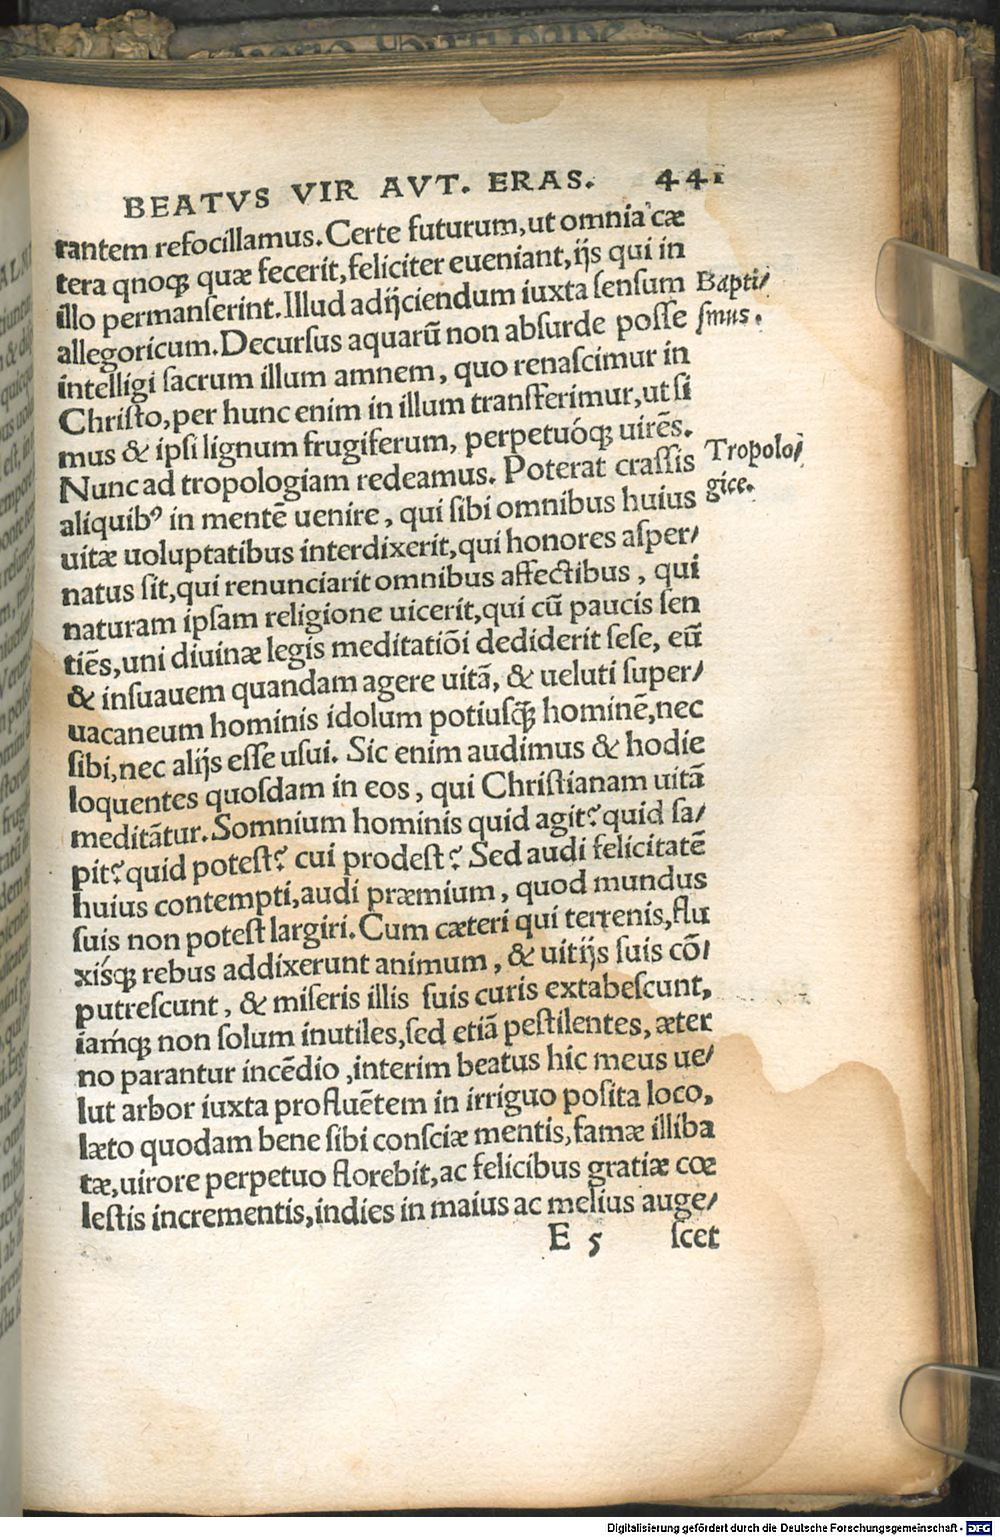 BEATVS VIR AVT. ERAS. 441
rantem refocillamus. Certe futurum, ut omnia cæ
tera qnoqꝫ quæ fecerit, feliciter eueniant, ijs qui in
illo permanſerint. Illud adijciendum iuxta ſenſum
Bapti/
allegoricum. Decurſus aquarũ non abſurde poſſe
ſmus.
intelligi ſacrum illum amnem, quo renaſcimur in
Chriſto, per hunc enim in illum tranſferimur, ut ſi
mus & ipſi lignum frugiferum, perpetuóqꝫ uirẽs.
Nunc ad tropologiam redeamus. Poterat craſſis
Tropolo/
aliquibꝰ in mentẽ uenire, qui ſibi omnibus huius
gice.
uitæ uoluptatibus interdixerit, qui honores aſper/
natus ſit, qui renunciarit omnibus affectibus, qui
naturam ipſam religione uicerit, qui cũ paucis ſen
tiẽs, uni diuinæ legis meditatiõi dediderit ſeſe, eũ
& inſuauem quandam agere uitã, & ueluti ſuper/
uacaneum hominis idolum potiuſqꝫ̃ hominẽ, nec
ſibi, nec alijs eſſe uſui. Sic enim audimus & hodie
loquentes quoſdam in eos, qui Chriſtianam uitã
meditãtur. Somnium hominis quid agit? quid ſa/
pit? quid poteſt? cui prodeſt? Sed audi felicitatẽ
huius contempti, audi præmium, quod mundus
ſuis non poteſt largiri. Cum cæteri qui terrenis, flu
xiſqꝫ rebus addixerunt animum, & uitijs ſuis cõ/
putreſcunt, & miſeris illis ſuis curis extabeſcunt,
iamqꝫ non ſolum inutiles, ſed etiã peſtilentes, æter
no parantur incẽdio, interim beatus hic meus ue/
lut arbor iuxta profluẽtem in irriguo poſita loco,
læto quodam bene ſibi conſciæ mentis, famæ illiba
tæ, uirore perpetuo florebit, ac felicibus gratiæ cœ
leſtis incrementis, indies in maius ac melius auge/
E 5 ſcet
Digitalisierung gefördert durch die Deutsche Forschungsgemeinschaft - DFG